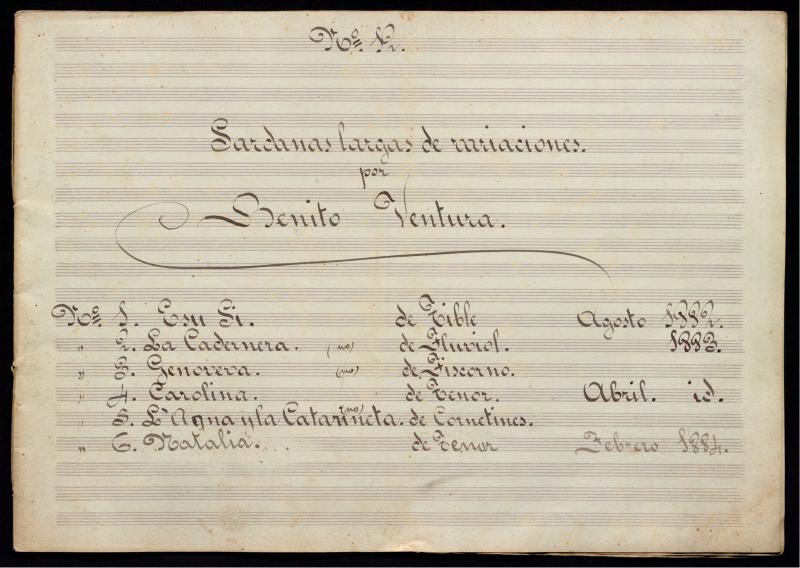 Nº. 12.
Sardanas largas de variaciones.
por
Benito Ventura.
Nº. 1. Esu Si. de Tible Agosto 1882.
„ 2. La Cadernera. (no) de Fluviol. 1883.
„ 3. Genoveva. (no) de Fiscorno.
„ 4. Carolina. de Tenor. Abril. id.
„ 5. L'Agna y la Catarineta. (no) de Cornetines.
„ 6. Natalia. de Tenor Febrero 1884.